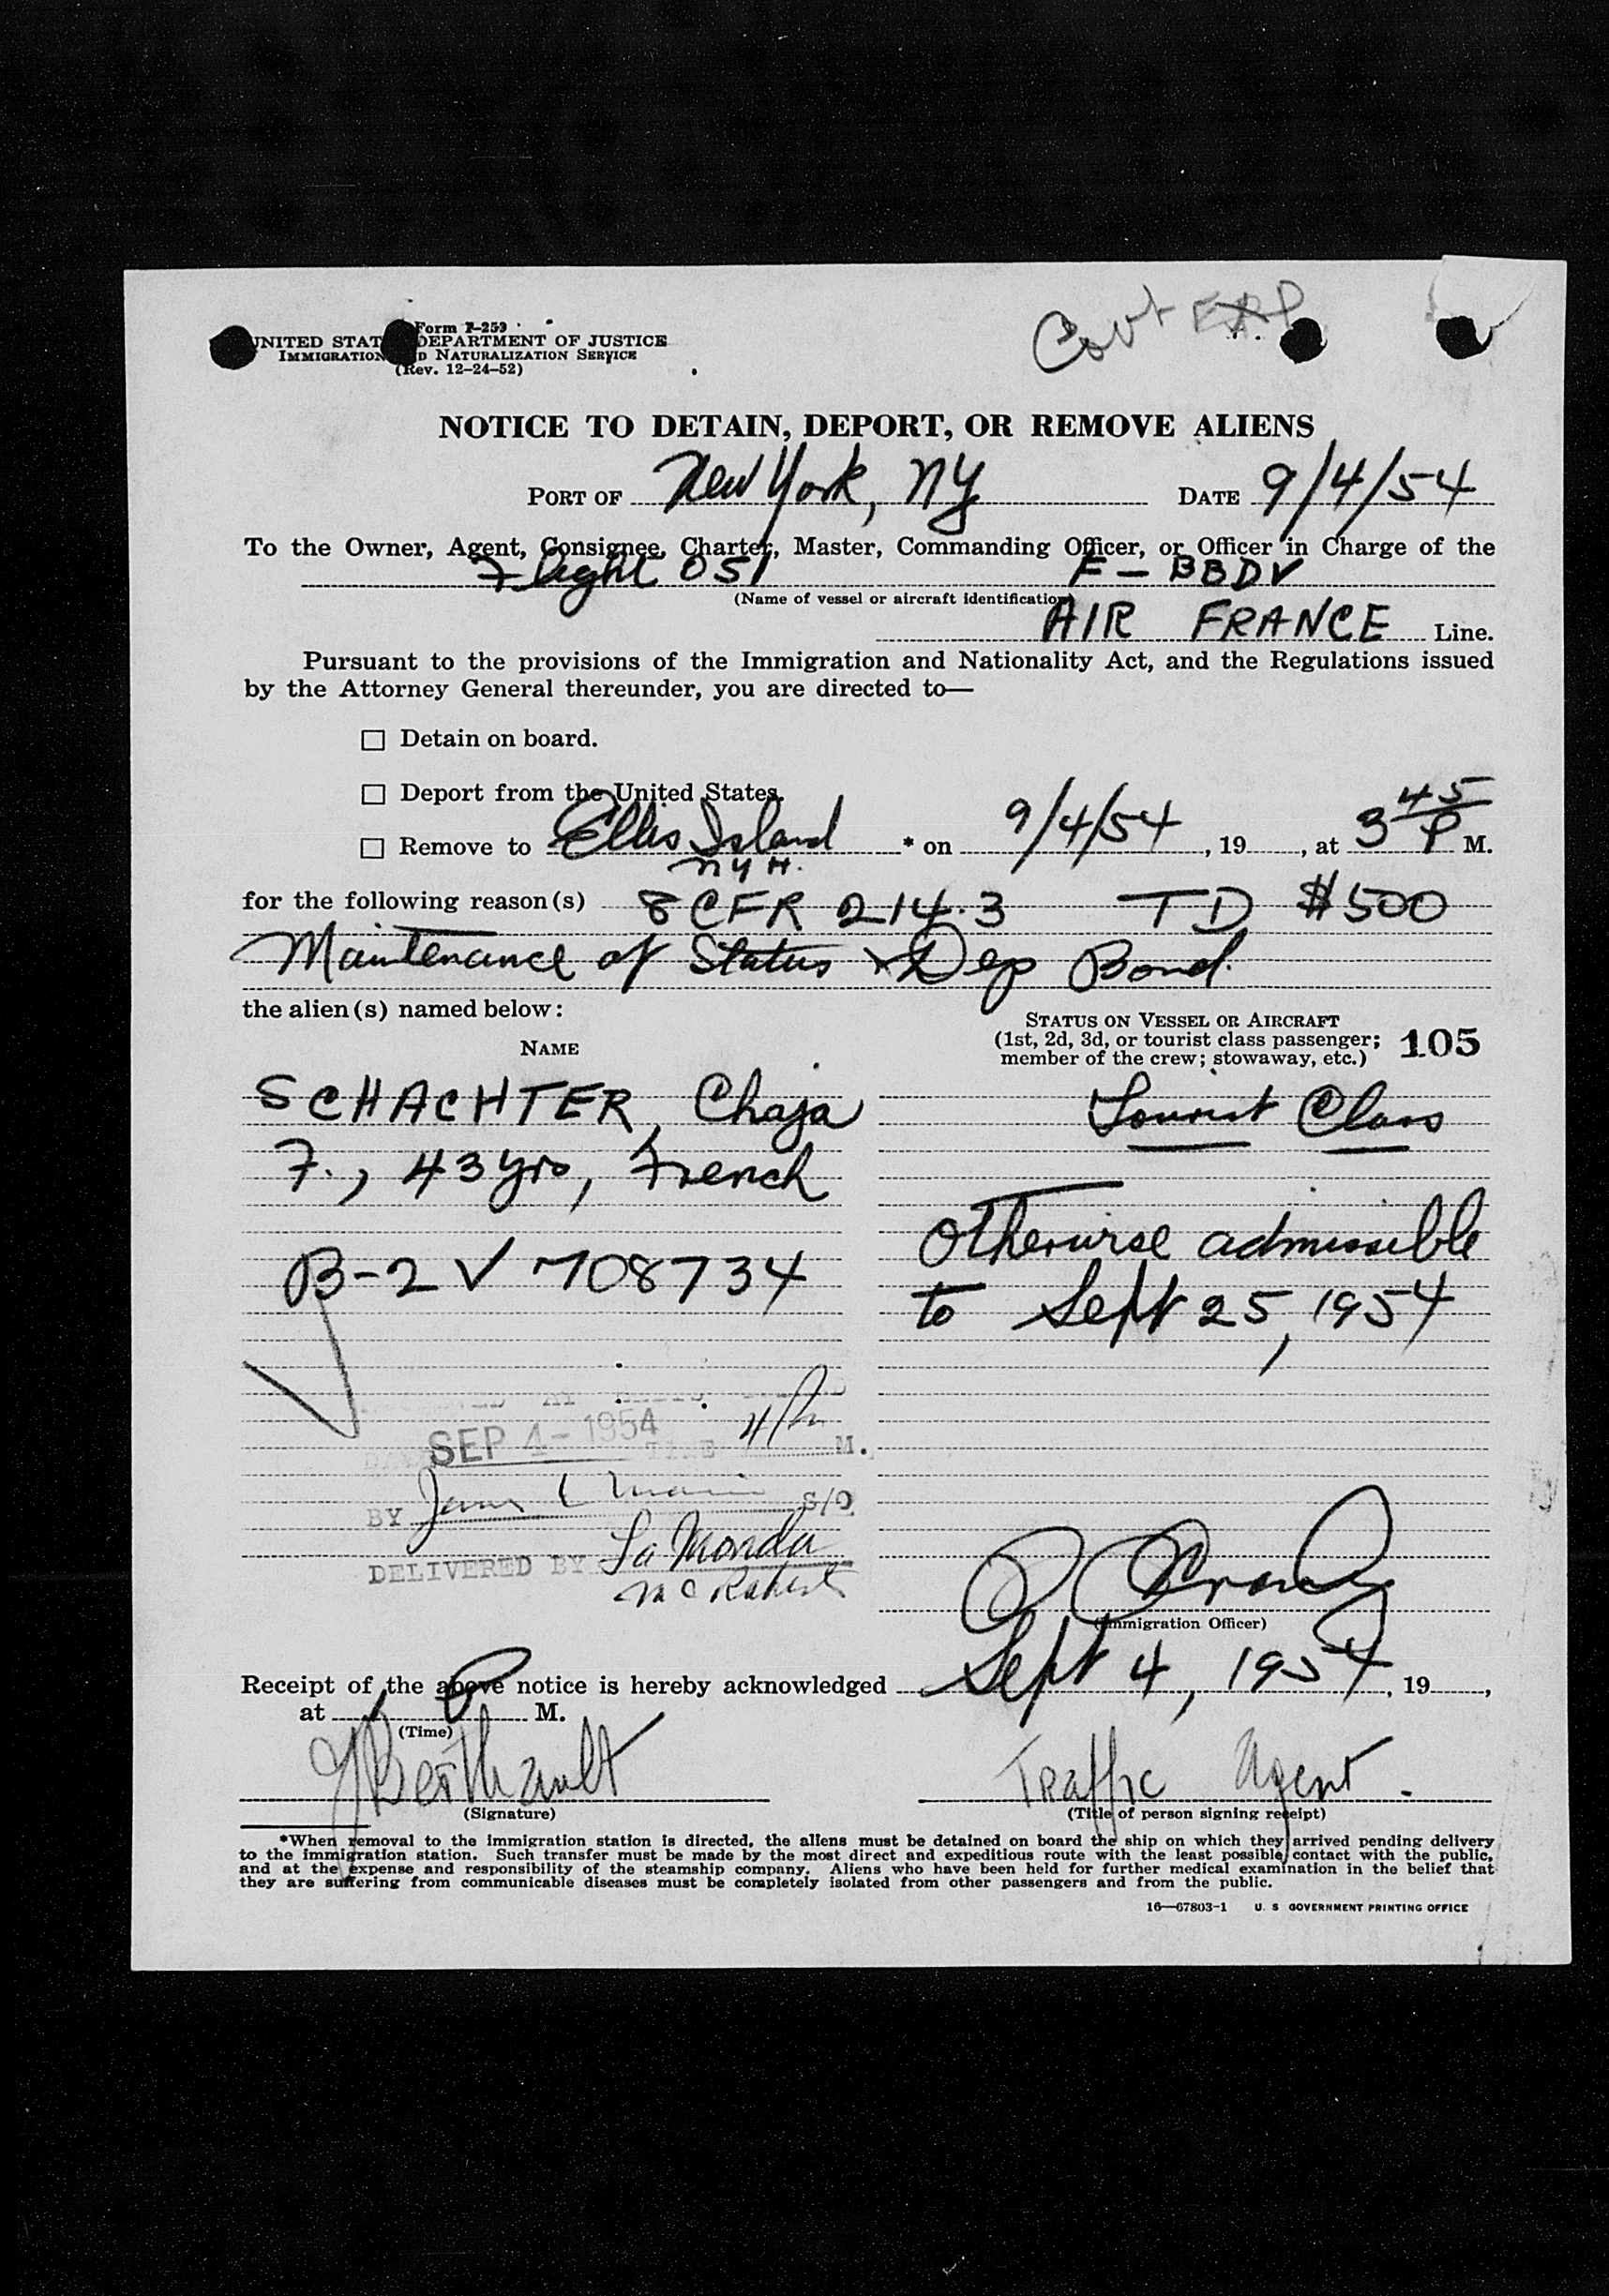 Govt EXP
Form I-259
UNITED STAT DEPARTMENT OF JUSTICE
IMMIGRATION D NATURALIZATION SERVICE
(Rev. 12-24-52)
NOTICE TO DETAIN, DEPORT, OR REMOVE ALIENS
PORT OF New York, NY DATE 9/4/54
To the Owner, Agent, Consignee, Charter, Master, Commanding Officer, or Officer in Charge of the
Flight 051 F-BBDV
(Name of vessel or aircraft identification)
AIR FRANCE Line.
Pursuant to the provisions of the Immigration and Nationality Act, and the Regulations issued
by the Attorney General thereunder, you are directed to—
☐ Detain on board.
☐ Deport from the United States.
☐ Remove to Ellis Island * on 9/4/54, 19 , at 3 45 P M.
NYH.
for the following reason(s) 8 CFR 214.3 TD $500
Maintenance of Status & Dep Bond.
the alien(s) named below:
NAME
STATUS ON VESSEL OR AIRCRAFT
(1st, 2d, 3d, or tourist class passenger;
member of the crew; stowaway, etc.)
105
SCHACHTER, Chaja Tourist Class
F., 43 yrs, French
Otherwise admissible
B-2 V 708734
to Sept 25, 1954
SEP 4-1954 TIME M.
BY S/O
DELIVERED BY La Monda
(Immigration Officer)
Receipt of the above notice is hereby acknowledged Sept 4, 1954, 19 ,
at P M.
(Time)
Berthault Traffic Agent.
(Signature) (Title of person signing receipt)
*When removal to the immigration station is directed, the aliens must be detained on board the ship on which they arrived pending delivery
to the immigration station. Such transfer must be made by the most direct and expeditious route with the least possible contact with the public,
and at the expense and responsibility of the steamship company. Aliens who have been held for further medical examination in the belief that
they are suffering from communicable diseases must be completely isolated from other passengers and from the public.
16—67803-1 U. S GOVERNMENT PRINTING OFFICE